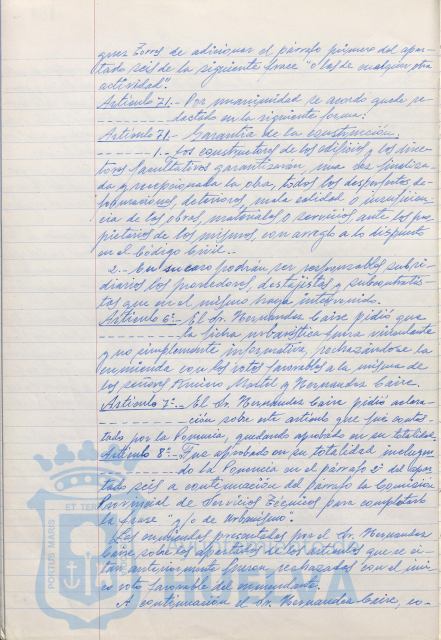 guez Torres de adicionar el párrafo primero del apar-
tado seis de la siguiente frase "o las de cualquier otra
actividad".
Artículo 71.- Por unanimidad se acordo quede re-
dactado en la siguiente forma:
Artículo 71.- Garantía de la construcción.
1.- Los constructores de los edificios y los direc-
tores facultativos garantizarán, una vez finaliza-
da y recepcionada la obra, todos los desperfectos de-
formaciones, deterioros, mala calidad o insuficien-
cia de las obras, materiales o servicios ante los pro-
pietarios de los mismos, con arreglo a lo dispuesto
en el Código Civil.-
2.- En su caso podrán ser responsables subsi-
diarios los proveedores, destajistas y subcontratis-
tas que en el mismo haya intervenido.
Artículo 6º.- El Sr. Hernández Caire pidió que
la ficha urbanística fuera vinculante
y no simplemente informativa, rechazándose la
enmienda con los votos favorables a la misma de
los señores Martel y Hernández Caire.
Artículo 7º.- El Sr. Hernández Caire pidió aclara-
ción sobre este artículo que fué contes-
tado por la Ponencia, quedando aprobado en su totalidad.
Artículo 8º.- Fue aprobado en su totalidad incluyen-
do la Ponencia en el párrafo 2º del apar-
tado seis a continuación del párrafo la Comisión
Provincial de Servicios Técnicos para completarlo
la frase "y/o de Urbanismo".
Las enmiendas presentadas por el Sr. Hernández
Caire sobre los apartados de los artículos que se ci-
tan anteriormente fueron rechazadas con el úni-
co voto favorable del enmendante.
A continuación el Sr. Hernández Caire, co-
PORTUS MARIS
ET TER
HUELVA